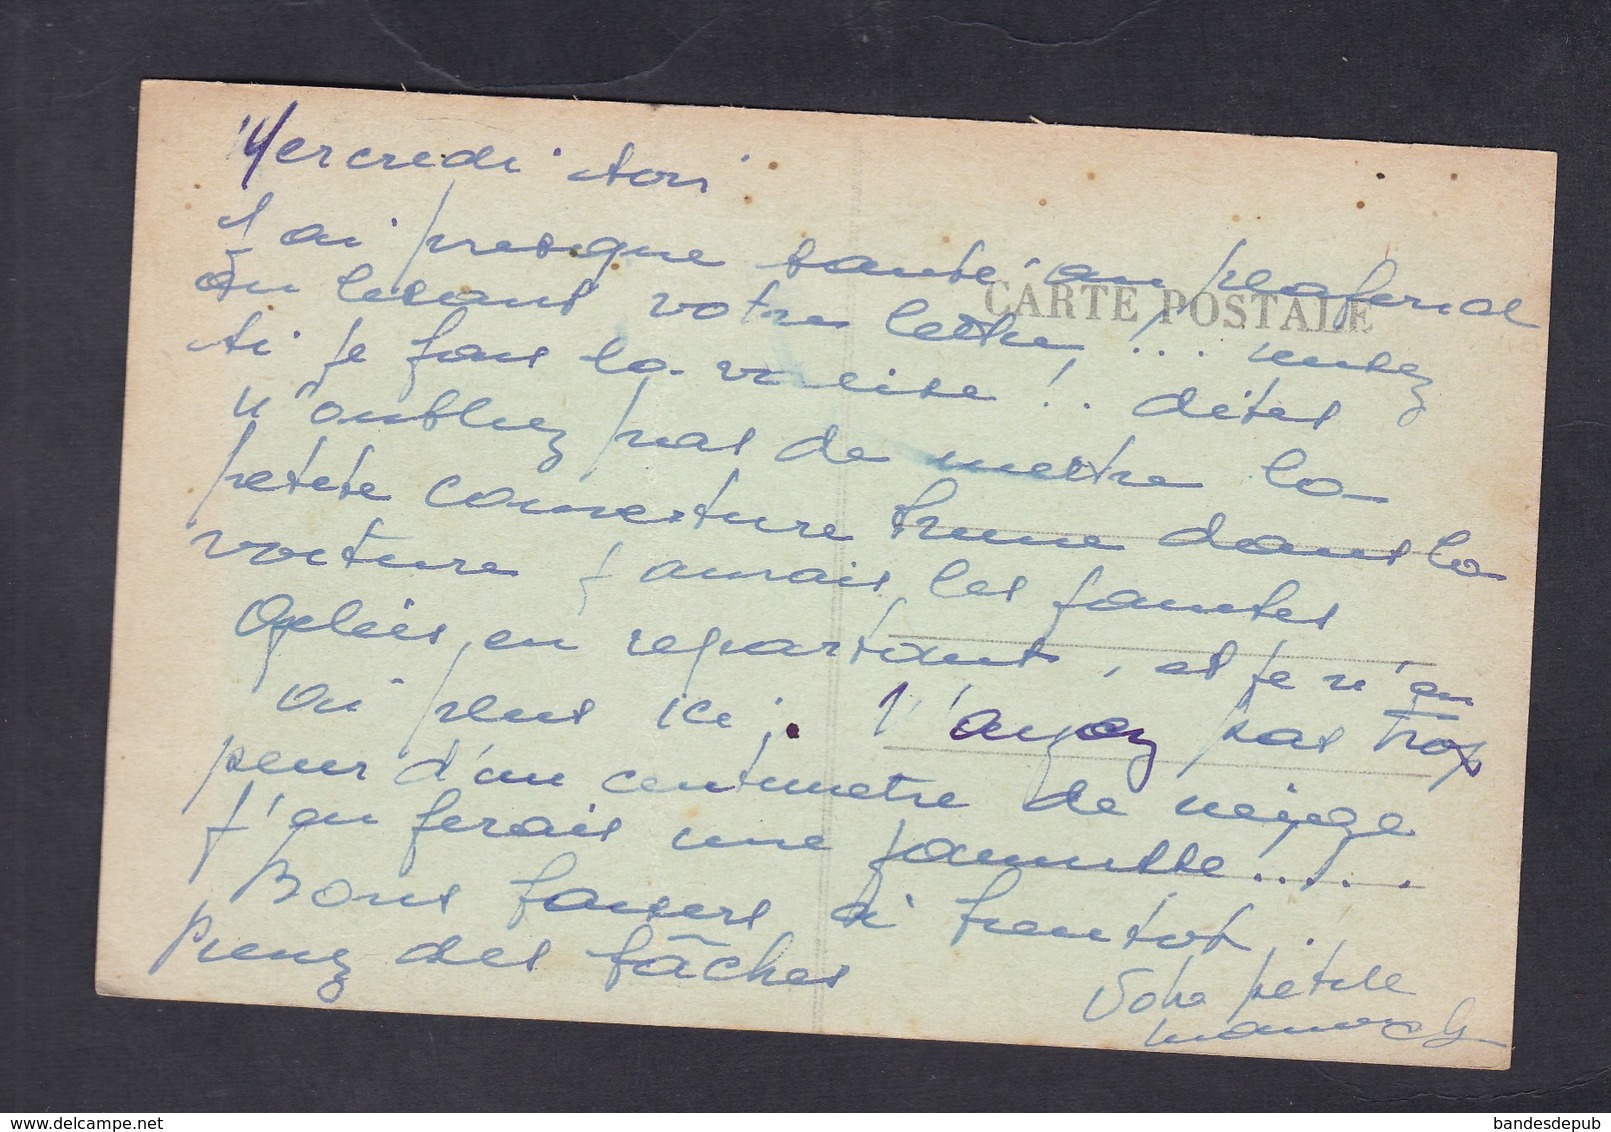 Mercredi soir
J'ai presque sauté au plafond
en lisant votre lettre, !... pensez
si je fais la valise !.. dites
n'oubliez pas de mettre la
petite couverture brune dans la
voiture j'aurais les jambes
en repartant, et je n'en
ai plus ici. N'ayez pas trop
peur d'un centimetre de neige
j'en ferais une jaunisse.....
Bons baisers à bientot.
prenz des bâches
Votre petite
CARTE POSTALE
bandesdepub